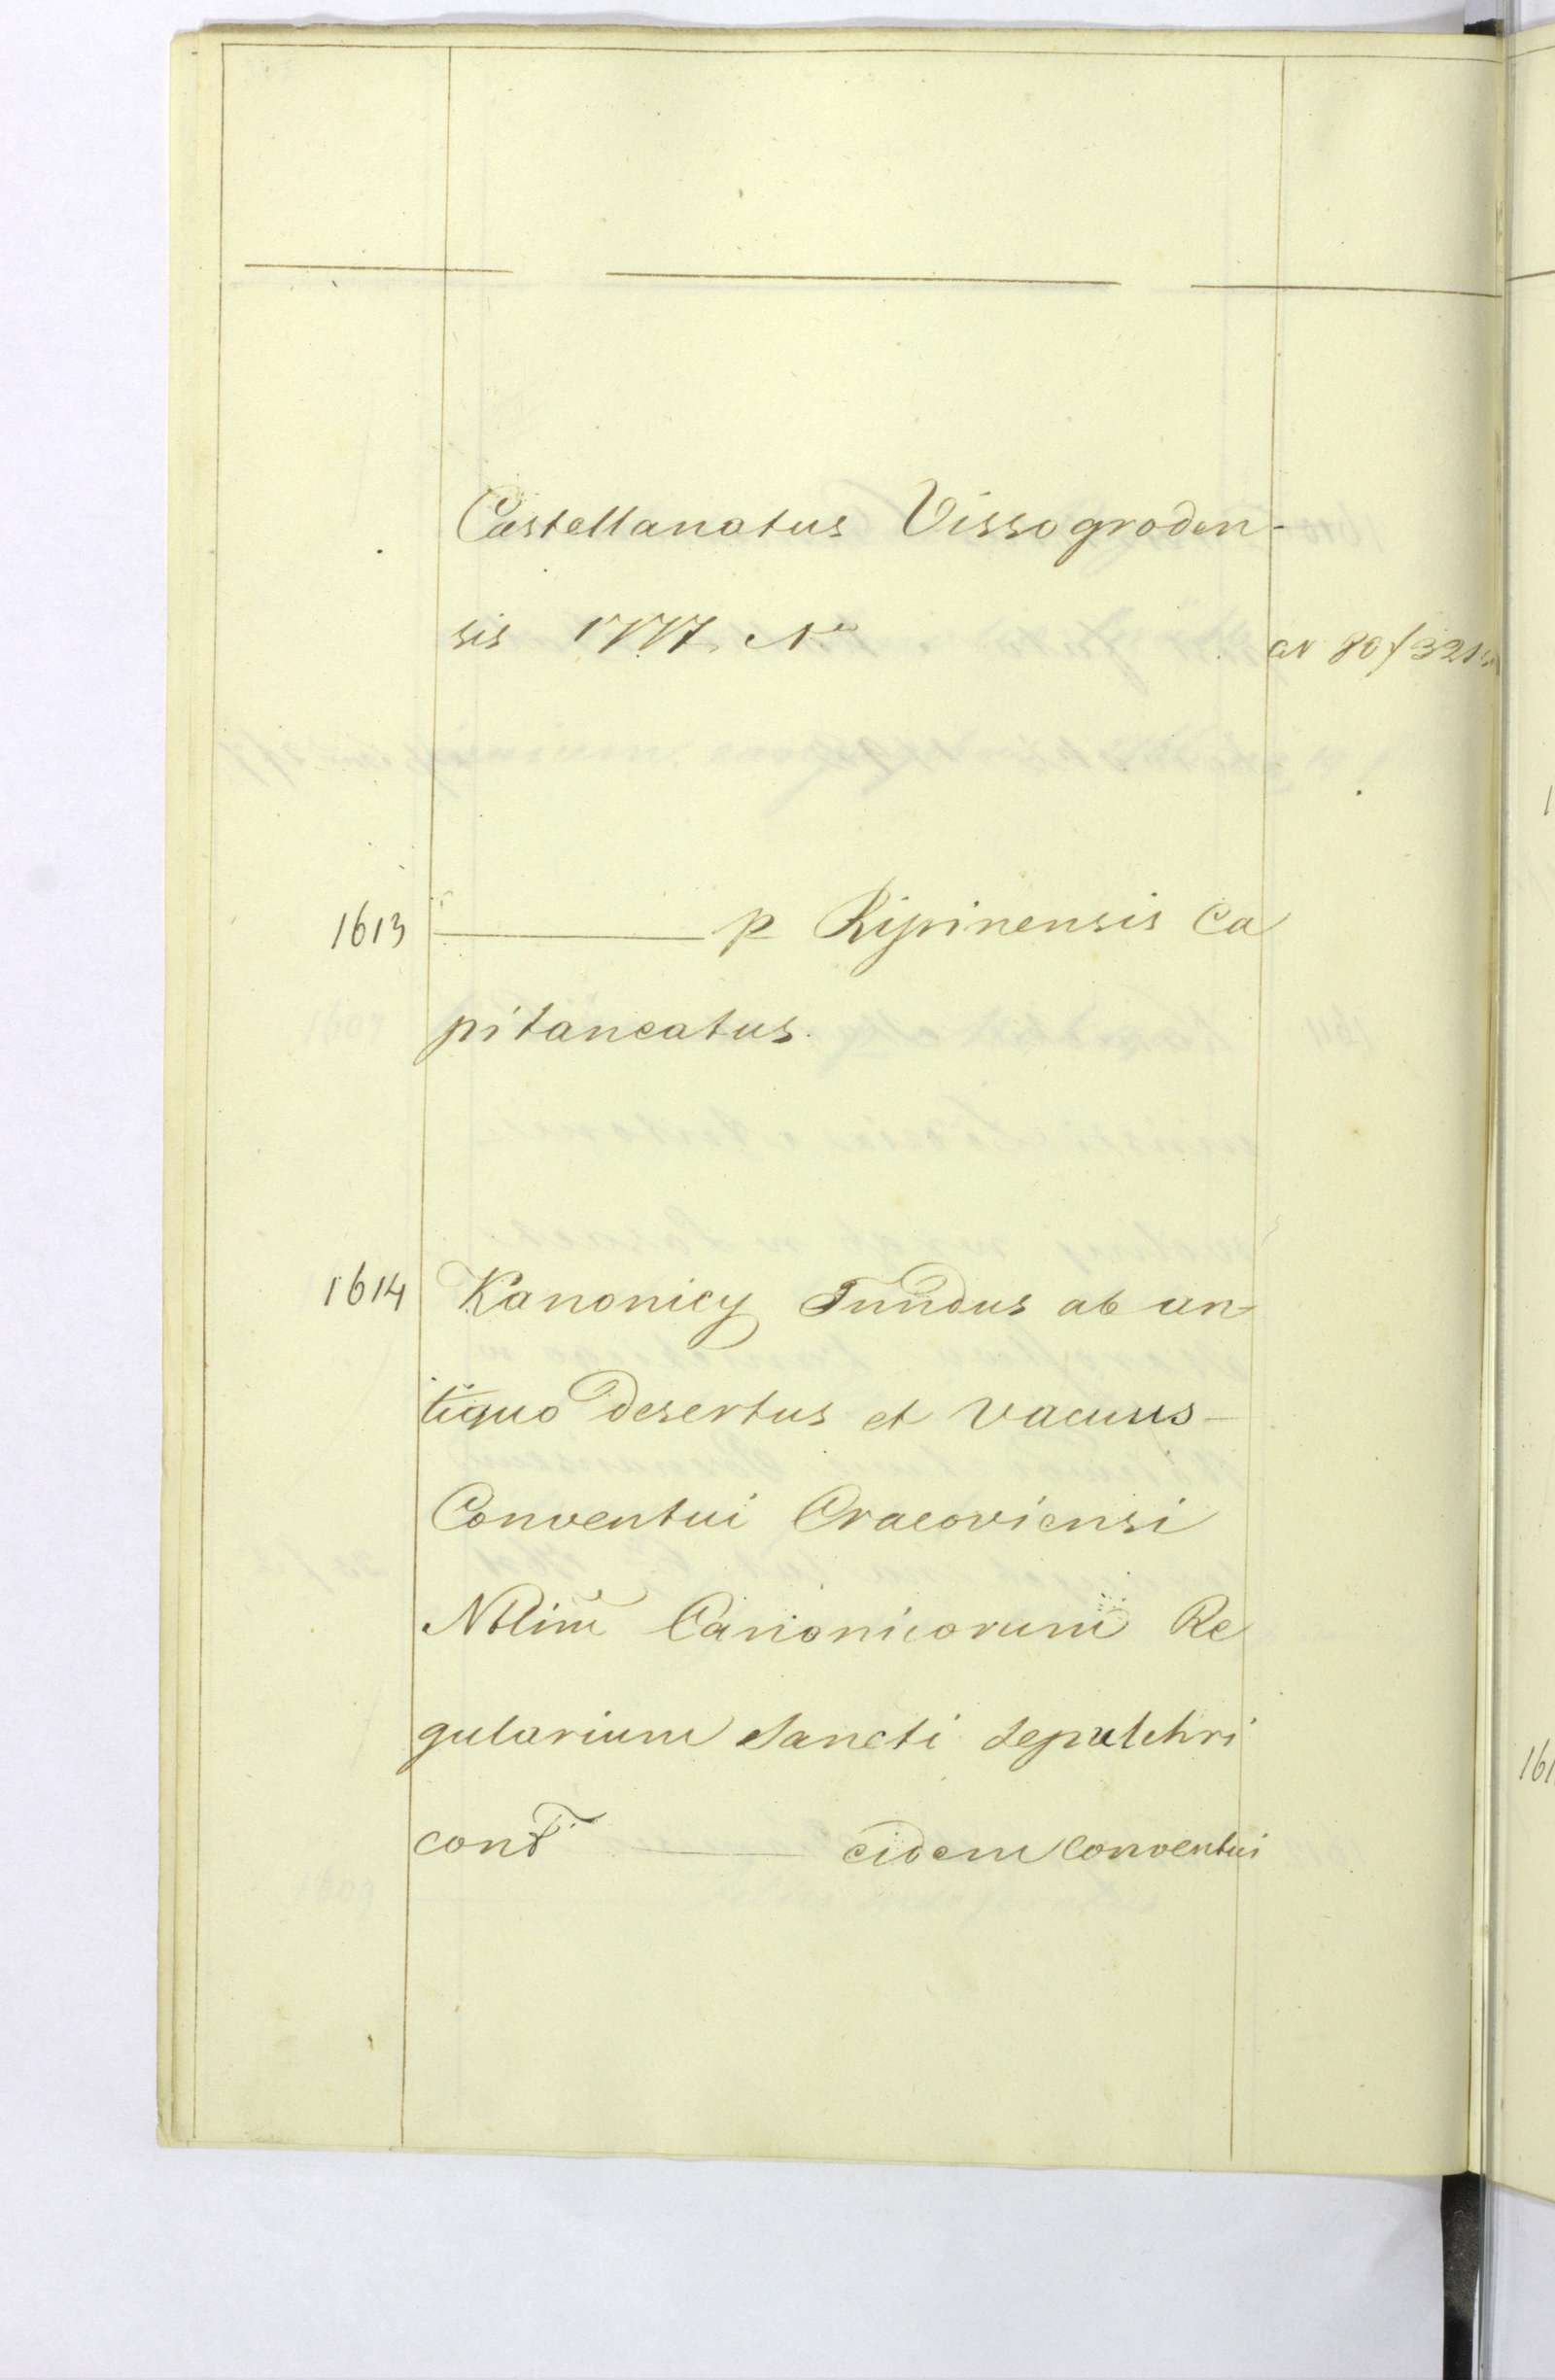 Castellanatus Vissogroden-
sis 1777 No
av 80/321
1613 p Ripinensis Ca
pitaneatus.
1614 Kanonicy Fundus ab an-
tiquo desertus et vacuus
Conventui Cracoviensi
Nblium Canonicorum Re
gularium Sancti Sepulchri
cont eidem Conventui
161